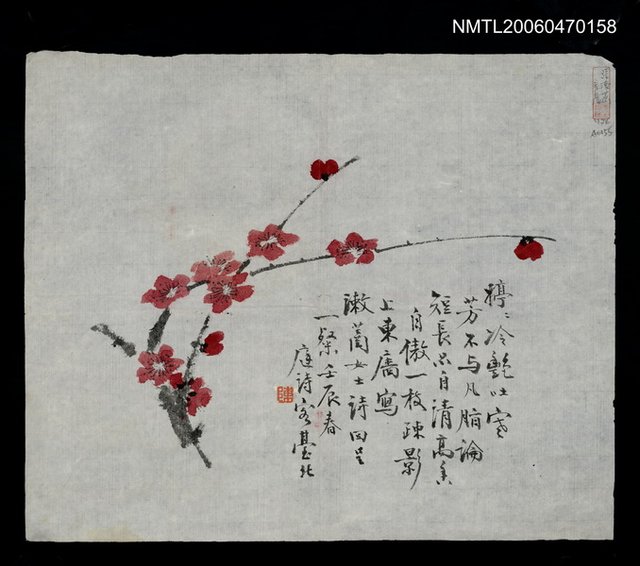 NMTL20060470158
婷〻冷艷吐寒
芳不与凡脂論
短長品自清高
自傲一枝疎影
上東牆寫
漱菌女士詩回呈
一粲壬辰春
庭詩客臺北